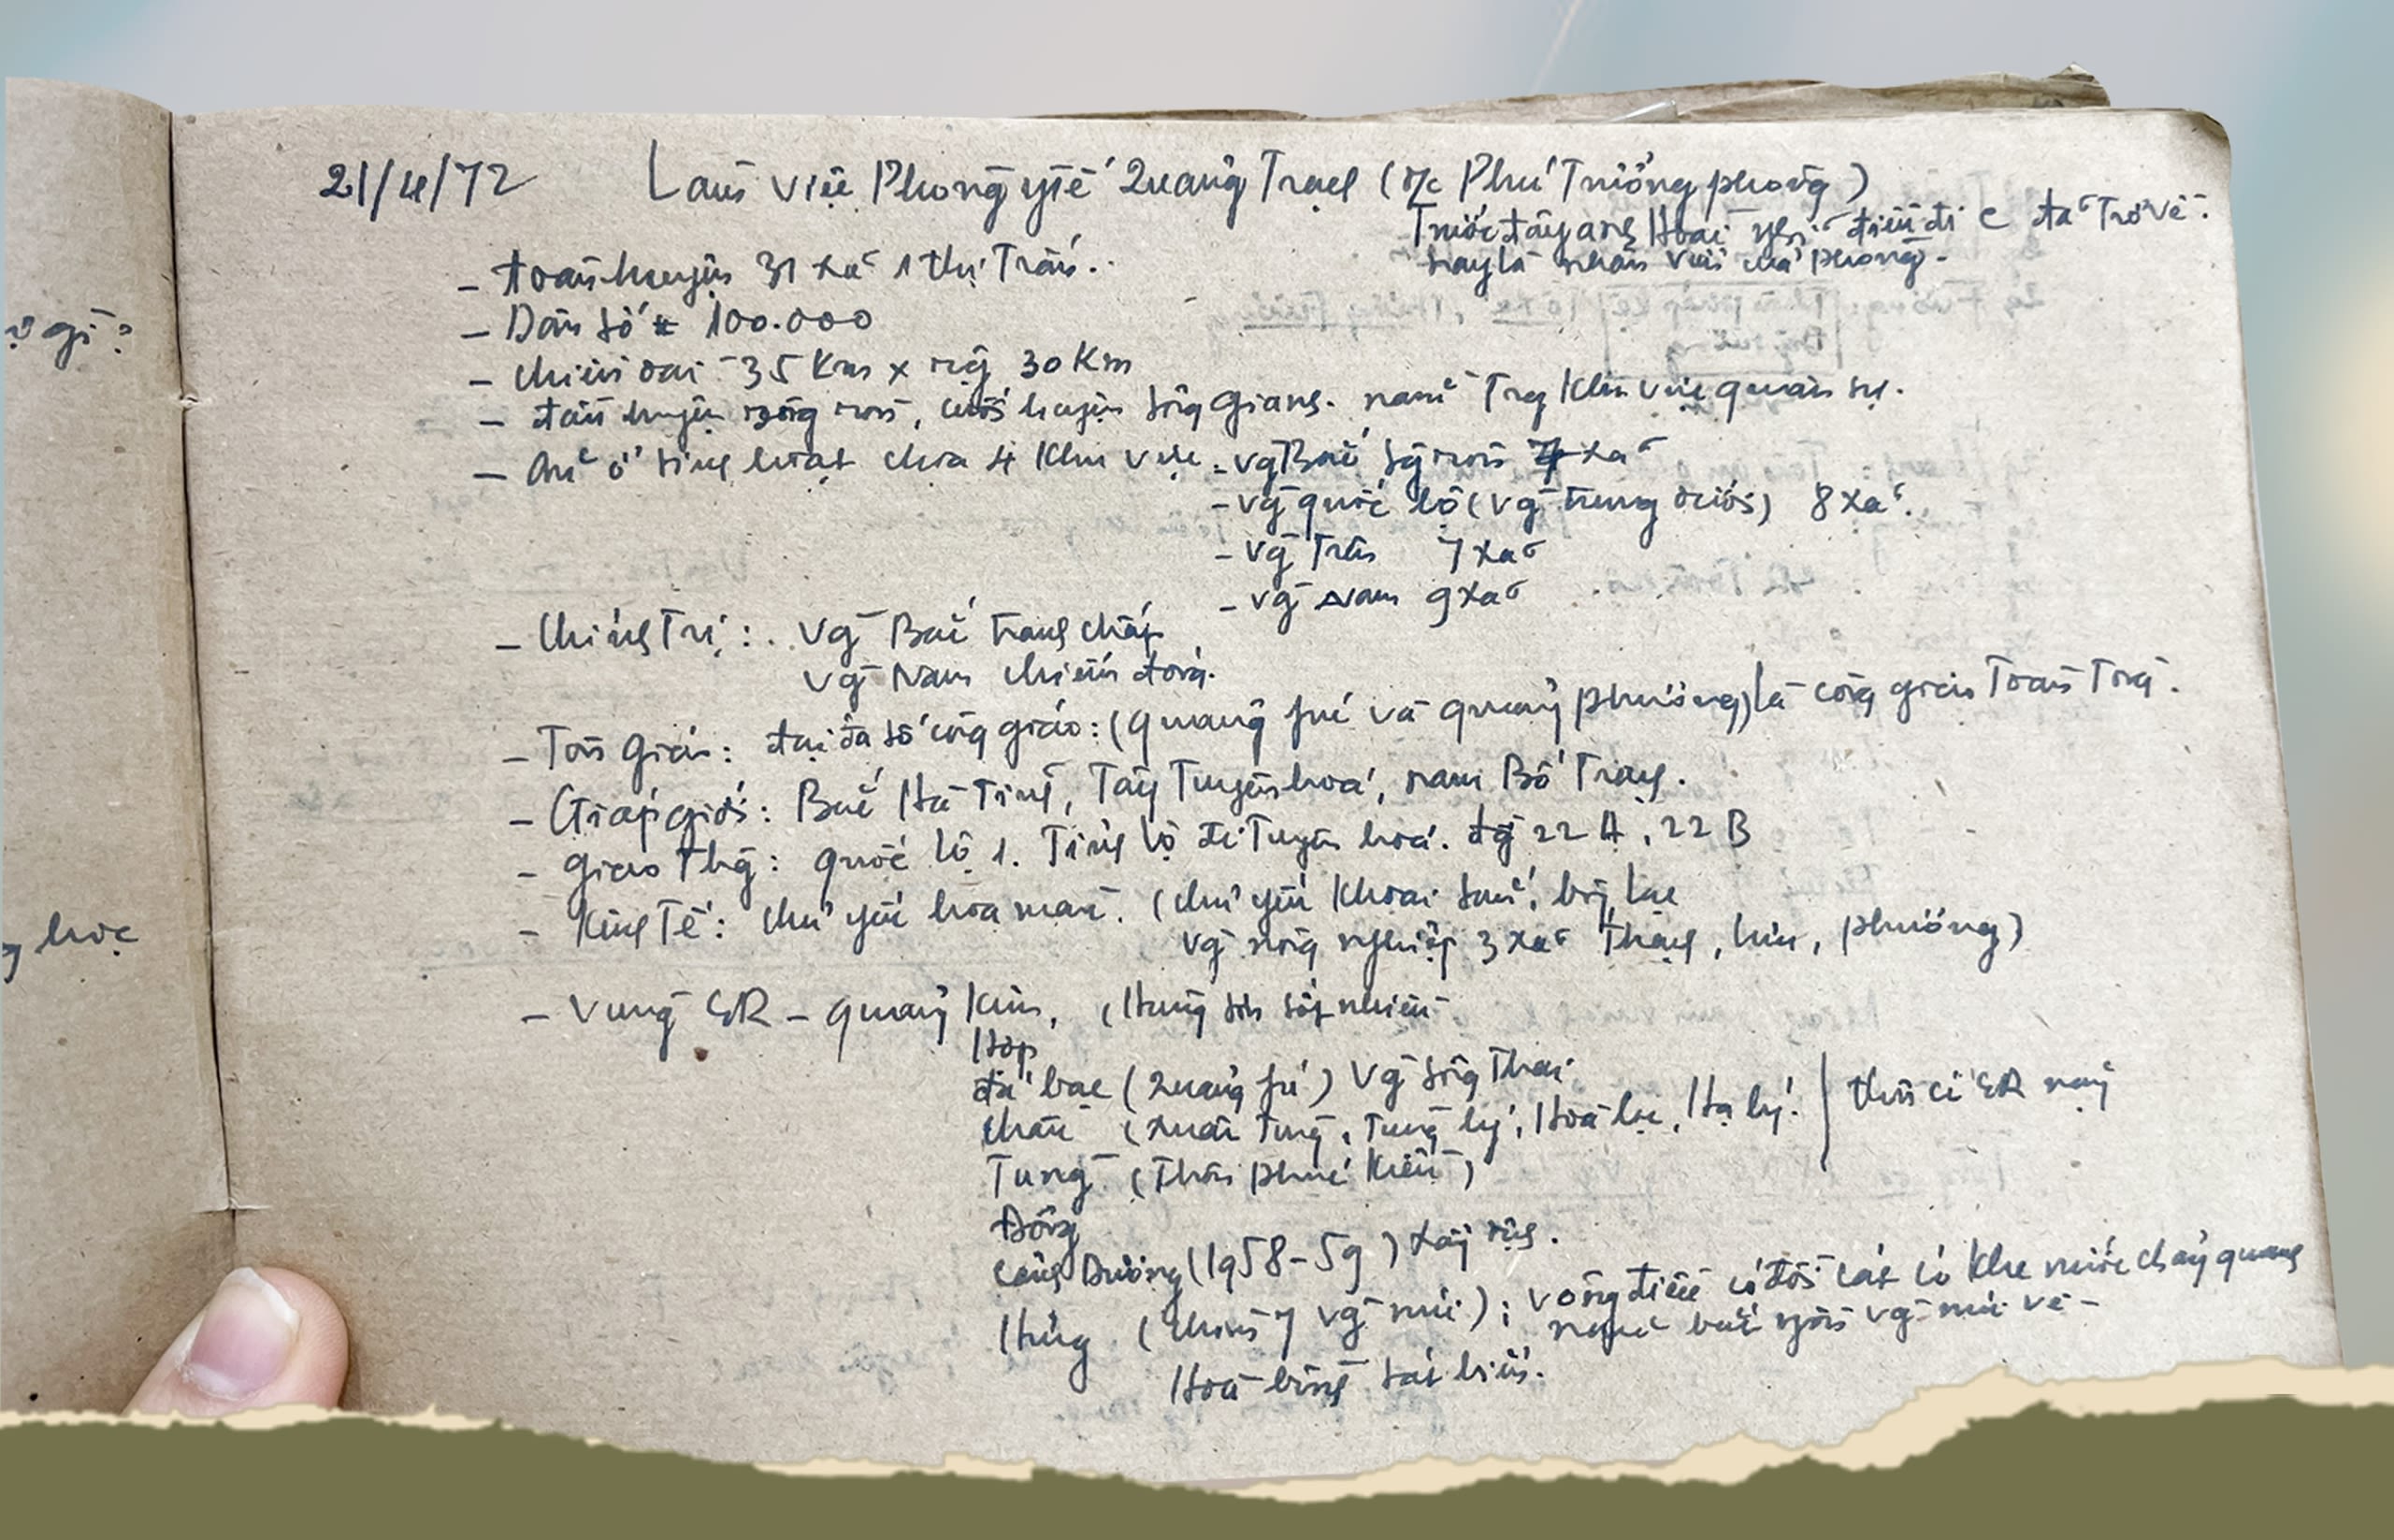 ở gì?
học
21/4/72 Làm việc Phòng y tế Quảng Trạch (đ/c Phú Trưởng phòng)
Trước đây anh Hoài y sĩ điều đi C đã trở về.
nay là nhân viên của phòng.
- toàn huyện 31 xã 1 thị Trấn.
- Dân số 100.000
- chiều dài 35 Km x rộg 30 Km
- đầu huyện sông ròn, cuối huyện sôg Gianh. nằm Trg Khu vực quân sự.
- Ăn ở sinh hoạt chia 4 Khu vực - vg Bắc sg ròn 7 xã
- vg quốc lộ (vg trung điểm) 8 xã.
- vg Trên 7 xã
- vg Nam 9 xã
- Chính Trị: vg Bắc tranh chấp
vg Nam chiếm đóng.
- Tôn Giáo: đại đa số côg giáo: (quảng phú và quảng phương) là côg giáo Toàn Tòng.
- Giáp giới: Bắc Hà Tĩnh, Tây Tuyên hoá, nam Bố Trạch.
- Giao Thg: quốc lộ 1. Tỉnh lộ đi Tuyên hoá. đg 22 A, 22 B
- Kinh Tế: chủ yếu hoa màu. (chủ yếu Khoai sắn, bôg, lạc
vg nôg nghiệp 3 xã Thạch, lưu, phương)
- Vùng SR - quảng Kim, (Hùng sơn sốt nhiều
Hợp
đá bạc (Quảng phú) Vg sôg Thai
châu (xuân Tùng, Tùng lý, Hoà lạc, Hạ lý. | thôn có SR nặng
Tùng (Thôn phúc Kiều)
Đông
Cảnh Dương (1958-59) xảy dịch.
Hưng ( 7 vg núi): vòng điều có đồi cát có khe nước chảy quanh
người bắt vg núi về
Hoà bình sát biển.